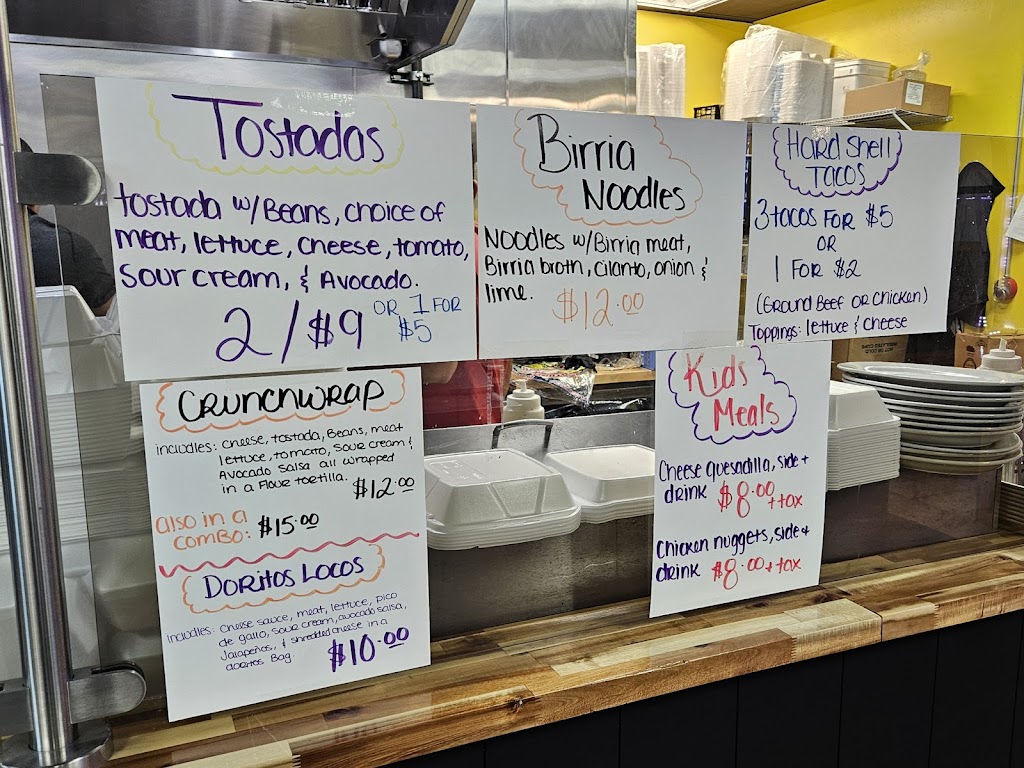 Tostadas
tostada w/Beans, choice of
meat, lettuce, cheese, tomato,
sour cream, & Avocado.
2/$9 OR 1 FOR
$5
Birria
Noodles
Noodles w/Birria meat,
Birria broth, cilanto, onion &
lime.
$12.00
Hard Shell
Tacos
3 tacos FOR $5
OR
1 FOR $2
(Ground Beef OR Chicken)
Toppings: lettuce & cheese
Crunchwrap
includles: cheese, tostada, Beans, meat
lettuce, tomato, sour cream &
Avocado salsa all wrapped
in a Flour tortilla. $12.00
also in a
combo: $15.00
Doritos Locos
includles: cheese sauce, meat, lettuce, pico
de gallo, sour cream, avocado salsa,
Jalapeños, & shredded cheese in a
doritos Bag. $10.00
Kids
Meals
Cheese quesadilla, side +
drink $8.00 + tax
Chicken nuggets, side +
drink $8.00 + tax